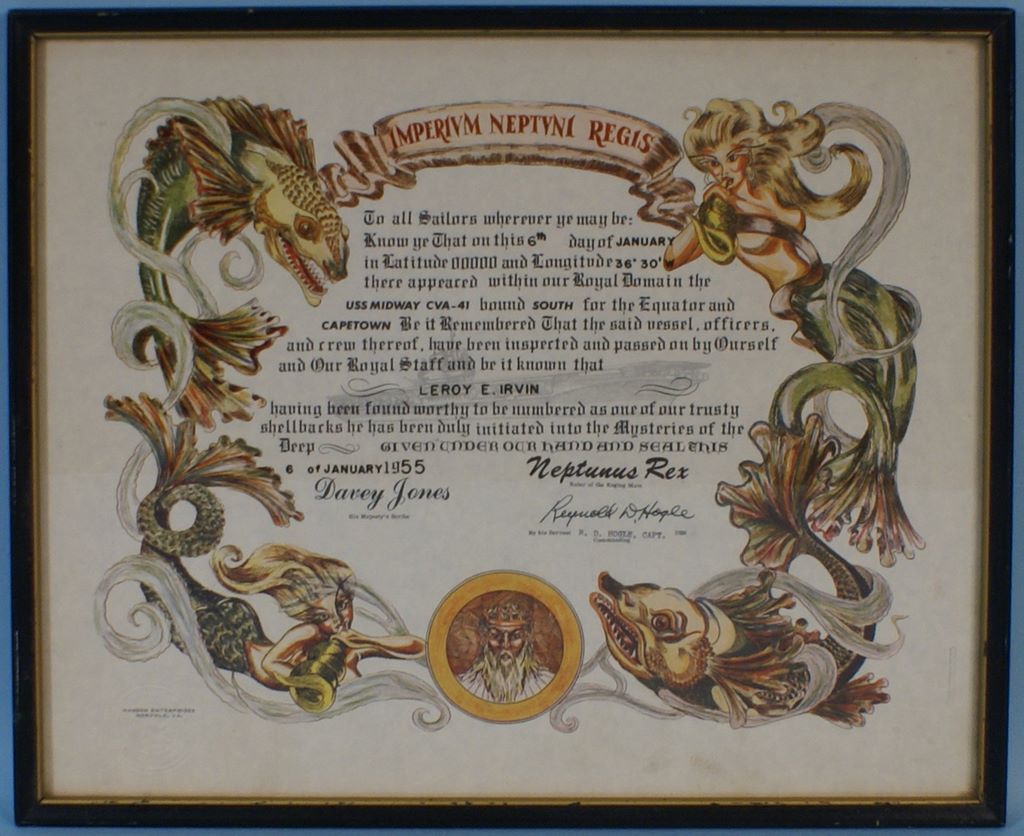 IMPERIVM NEPTVNI REGIS
To all Sailors wherever ye may be:
Know ye That on this 6th day of JANUARY
in Latitude 00000 and Longitude 36° 30'
there appeared within our Royal Domain the
USS MIDWAY CVA-41 bound SOUTH for the Equator and
CAPETOWN Be it Remembered That the said vessel, officers,
and crew thereof, have been inspected and passed on by Ourself
and Our Royal Staff and be it known that
LEROY E. IRVIN
having been found worthy to be numbered as one of our trusty
shellbacks he has been duly initiated into the Mysteries of the
Deep GIVEN UNDER OUR HAND AND SEAL THIS
6 of JANUARY 1955
Davey Jones
His Majesty's Scribe
Neptunus Rex
Ruler of the Raging Main
Reynold D. Hogle
By his Servant R. D. HOGLE, CAPT. USN
Commanding
ENTERPRISES
NORFOLK, VA.